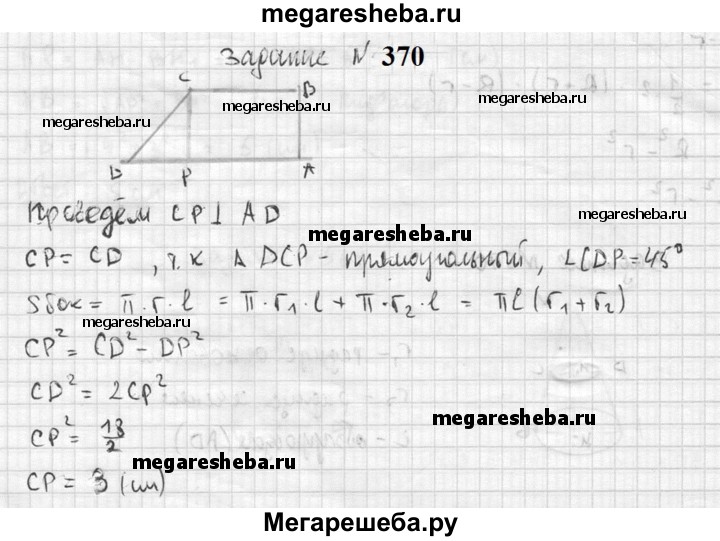 megaresheba.ru
Задание N 370
C B
megaresheba.ru
megaresheba.ru
megaresheba.ru
D P A
Проведём CP ⊥ AD
megaresheba.ru
CP = CD , т.к Δ DCP - прямоугольный, ∠CDP = 45°
Sбок = π · r · l = π · r₁ · l + π · r₂ · l = πl (r₁ + r₂)
megaresheba.ru
CP² = CD² - DP²
CD² = 2CP²
megaresheba.ru
CP² = 18/2
megaresheba.ru
CP = 3 (см)
Мегарешеба.ру